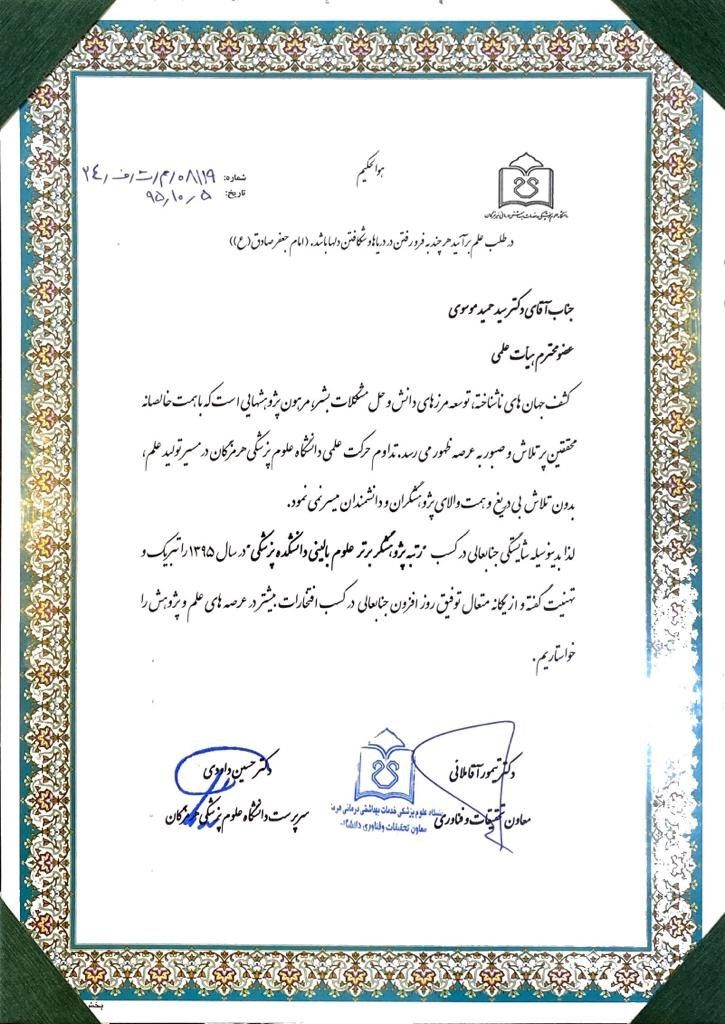 هوالحکیم
شماره: ۲۴/ف/ت/م/۰۸۱۱۹
تاریخ: ۹۵/۱۰/۵
دانشگاه علوم پزشکی و خدمات بهداشتی درمانی هرمزگان
در طلب علم برآئید هر چند به فرو رفتن در دریاها و شکافتن دلها باشد. (امام جعفر صادق (ع))
جناب آقای دکتر سید حمید موسوی
عضو محترم هیأت علمی
کشف جهان های ناشناخته، توسعه مرزهای دانش و حل مشکلات بشر، مرهون پژوهشهایی است که با همت خالصانه
محققین پر تلاش و صبور به عرصه ظهور می رسد. تداوم حرکت علمی دانشگاه علوم پزشکی هرمزگان در مسیر تولید علم،
بدون تلاش بی دریغ و همت والای پژوهشگران و دانشمندان میسر نمی نمود.
لذا بدینوسیله شایستگی جنابعالی در کسب "رتبه پژوهشگر برتر علوم بالینی دانشکده پزشکی" در سال ۱۳۹۵ را تبریک و
تهنیت گفته و از یگانه متعال توفیق روز افزون جنابعالی در کسب افتخارات بیشتر در عرصه های علم و پژوهش را
خواستاریم.
دکتر تیمور آقاملائی
معاون تحقیقات و فناوری
دانشگاه علوم پزشکی خدمات بهداشتی درمانی هرمز
معاون تحقیقات وفناوری دانشگاه
دکتر حسین داودی
سرپرست دانشگاه علوم پزشکی هرمزگان